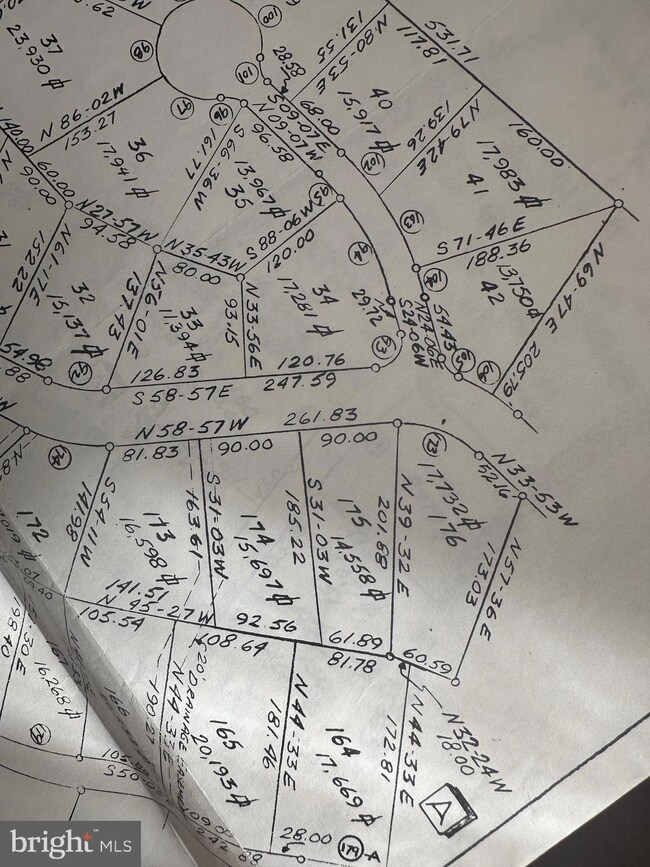 100
531.71
117.81
131.55
N 80-53 E
37
23,930 ⌀
98
28.58
101
40
15,917 ⌀
139.26
N 79-42 E
160.00
N 86-02 W
153.27
97
96
S 09-07 E
68.00
N 09-07 W
96.58
102
17,983 ⌀
41
140.00
36
17,941 ⌀
161.77
S 66-36 W
35
13,967 ⌀
95
103
60.00
90.00
N 27-57 W
94.58
N 35-43 W
80.00
S 88-06 W
120.00
94
S 71-46 E
188.36
104
13750 ⌀
42
N 69-47 E
205.79
152.22
N 61-17 E
32
15,137 ⌀
137.43
N 56-01 E
33
11,394 ⌀
93.15
N 33-56 E
34
17,281 ⌀
29.72
S 24-06 W
N 24-06 E
57.43
105
106
93
54.98
92
126.83
120.76
S 58-57 E
247.59
N 58-57 W
261.83
81.83
90.00
90.00
73
N 33-53 W
52.16
74
141.98
S 54-11 W
173
16,598 ⌀
163.61
S 31-03 W
174
15,697 ⌀
185.22
S 31-03 W
175
14,558 ⌀
201.88
N 39-32 E
17,732 ⌀
176
N 57-36 E
173.03
172
141.51
N 45-27 W
105.54
92.56
61.89
60.59
108.64
81.78
98.40
16,268 ⌀
166
190.27
N 44-33 E
20' DRAINAGE
165
20,193 ⌀
181.46
N 44-33 E
164
17,669 ⌀
172.81
N 44-33 E
N 32-24 W
18.00
A
28.00
179
242.88
bright MLS